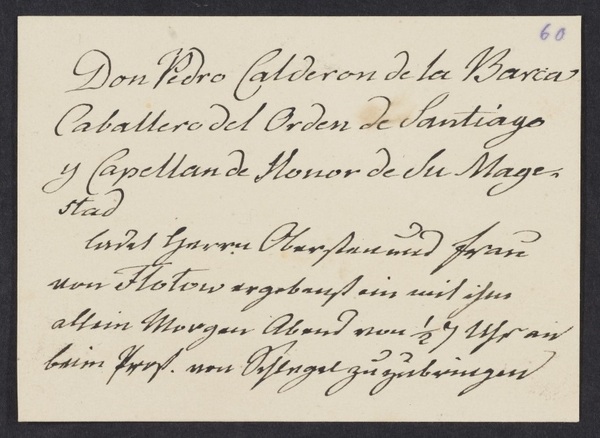 60
Don Pedro Calderon de la Barca
Caballero del Orden de Santiago
y Capellan de Honor de Su Mage-
stad
ladet Herrn Obersten und Frau
von Flotow ergebenst ein mit ihm
allein Morgen Abend von ½ 7 Uhr an
beim Prof. von Schlegel zuzubringen